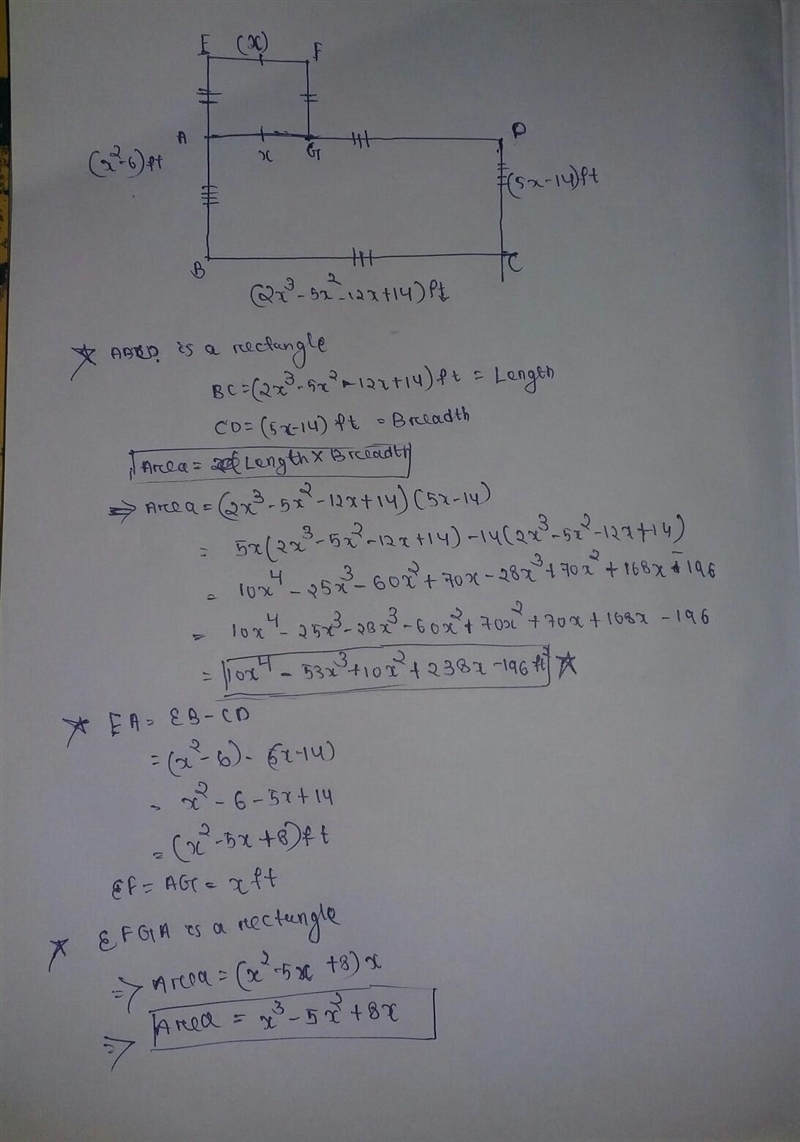 E (x) F
A x G D
(x²-6)ft
(5x-14)ft
B C
(2x³-5x²-12x+14)ft
☆ ABCD is a rectangle
BC=(2x³-5x²-12x+14)ft = Length
CD=(5x-14) ft = Breadth
Area = Length × Breadth
⇒ Area=(2x³-5x²-12x+14)(5x-14)
= 5x(2x³-5x²-12x+14)-14(2x³-5x²-12x+14)
= 10x⁴-25x³-60x²+70x-28x³+70x²+168x-196
= 10x⁴-25x³-28x³-60x²+70x²+70x+168x-196
= 10x⁴-53x³+10x²+238x-196 ft² ☆
☆ EA= EB-CD
=(x²-6)-(5x-14)
= x²-6-5x+14
= (x²-5x+8)ft
EF= AG= x ft
☆ EFGA is a rectangle
⇒ Area=(x²-5x+8)x
⇒ Area = x³-5x²+8x